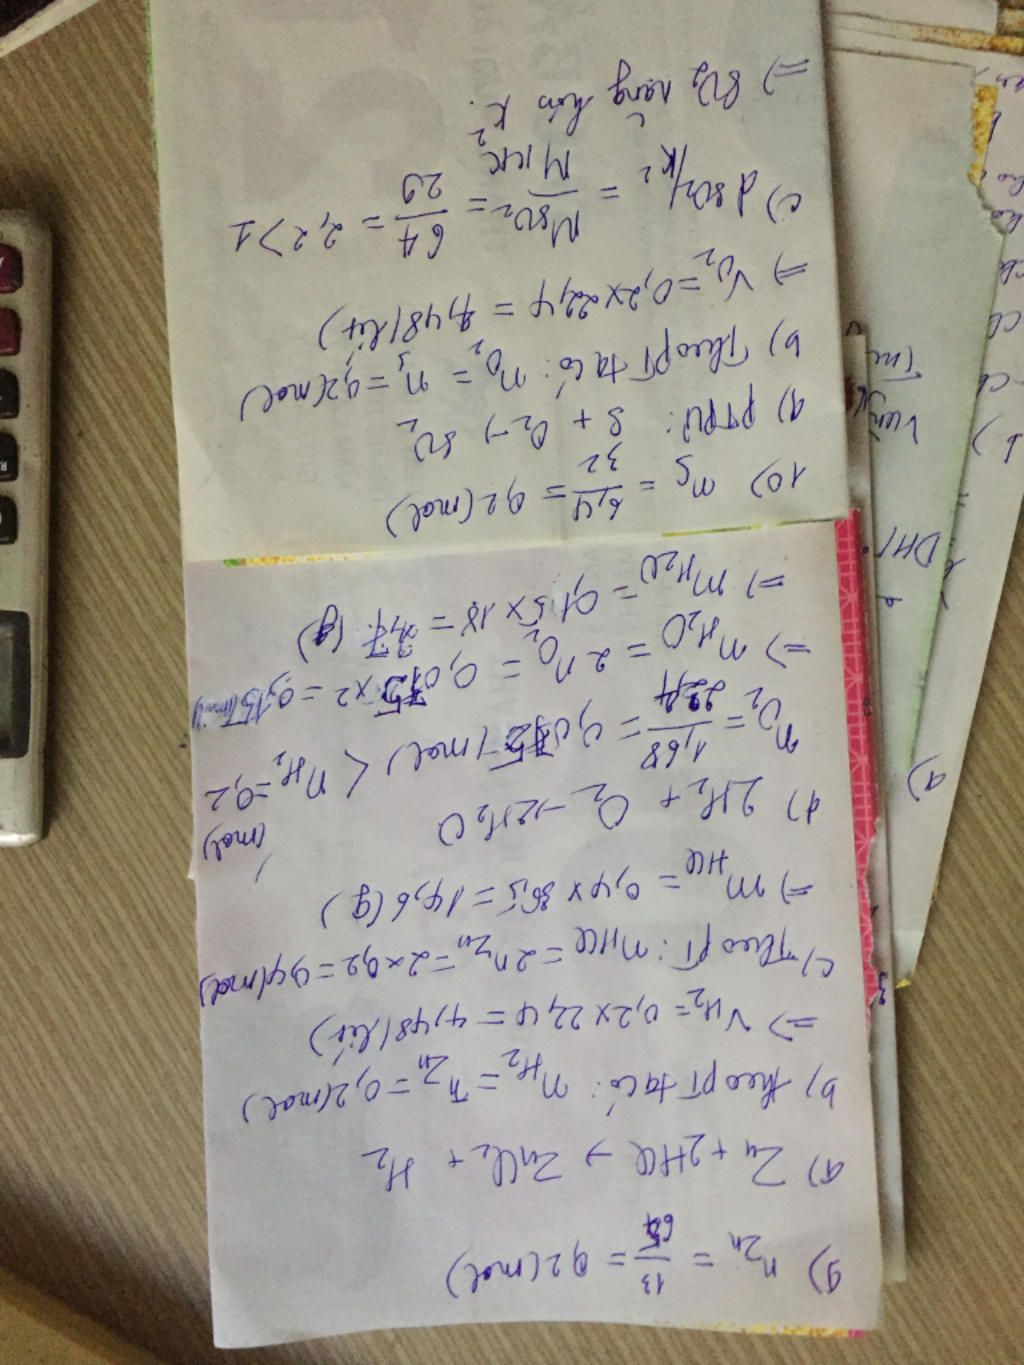 9) nZn = 13/65 = 0,2 (mol)
a) Zn + 2HCl → ZnCl2 + H2
b) theo PT ta có: nH2 = nZn = 0,2 (mol)
=> VH2 = 0,2 x 22,4 = 4,48 (lít)
c) Theo PT: nHCl = 2nZn = 2 x 0,2 = 0,4 (mol)
=> mHCl = 0,4 x 36,5 = 14,6 (g)
d) 2H2 + O2 → 2H2O
nO2 = 1,68/22,4 = 0,075 (mol) < nH2 = 0,2 (mol)
=> nH2O = 2nO2 = 0,075 x 2 = 0,15 (mol)
=> mH2O = 0,15 x 18 = 2,7 (g)
10) nS = 6,4/32 = 0,2 (mol)
a) PTPU: S + O2 → SO2
b) Theo PT ta có: nO2 = nS = 0,2 (mol)
=> VO2 = 0,2 x 22,4 = 4,48 (lít)
c) dSO2/k2 = MSO2/Mkk2 = 64/29 = 2,2 > 1
=> SO2 nặng hơn k2.